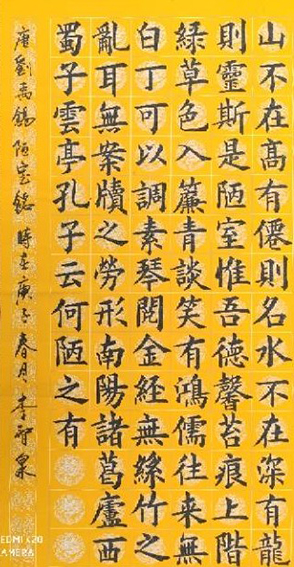 山不在髙有僊則名水不在深有龍
則靈斯是陋室惟吾德馨苔痕上階
綠草色入簾青談笑有鴻儒往来無
白丁可以調素琴閱金經無絲竹之
亂耳無案牘之勞形南陽諸葛廬西
蜀子雲亭孔子云何陋之有
唐劉禹錫陋室銘 時在庚子春月 李
EDMI K20
AMERA